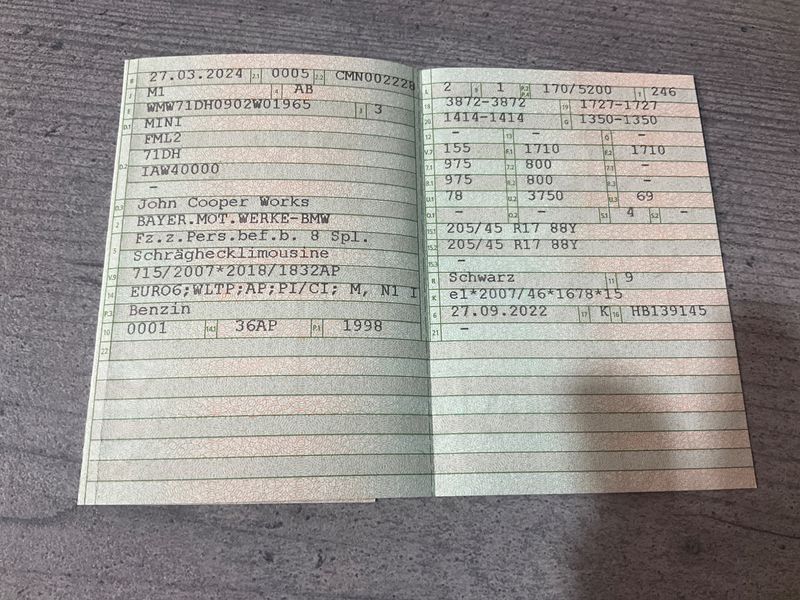 B 27.03.2024 2.1 0005 2.2 CMN002228
J M1 4 AB
E WMW71DH0902W01965 3 3
D.1 MINI
FML2
71DH
D.2 IAW40000
–
D.3 John Cooper Works
2 BAYER.MOT.WERKE-BMW
5 Fz.z.Pers.bef.b. 8 Spl.
Schräghecklimousine
V.9 715/2007*2018/1832AP
14 EURO6;WLTP;AP;PI/CI; M, N1 I
P.3 Benzin
10 0001 14.1 36AP P.1 1998
22
L 2 9 1 P.2 P.4 170/5200 T 246
18 3872-3872 19 1727-1727
20 1414-1414 G 1350-1350
12 – 13 – Q –
V.7 155 F.1 1710 F.2 1710
7.1 975 7.2 800 7.3 –
8.1 975 8.2 800 8.3 –
U.1 78 U.2 3750 U.3 69
O.1 – O.2 – S.1 4 S.2 –
15.1 205/45 R17 88Y
15.2 205/45 R17 88Y
15.3 –
R Schwarz 11 9
K e1*2007/46*1678*15
6 27.09.2022 17 K 16 HB139145
21 –